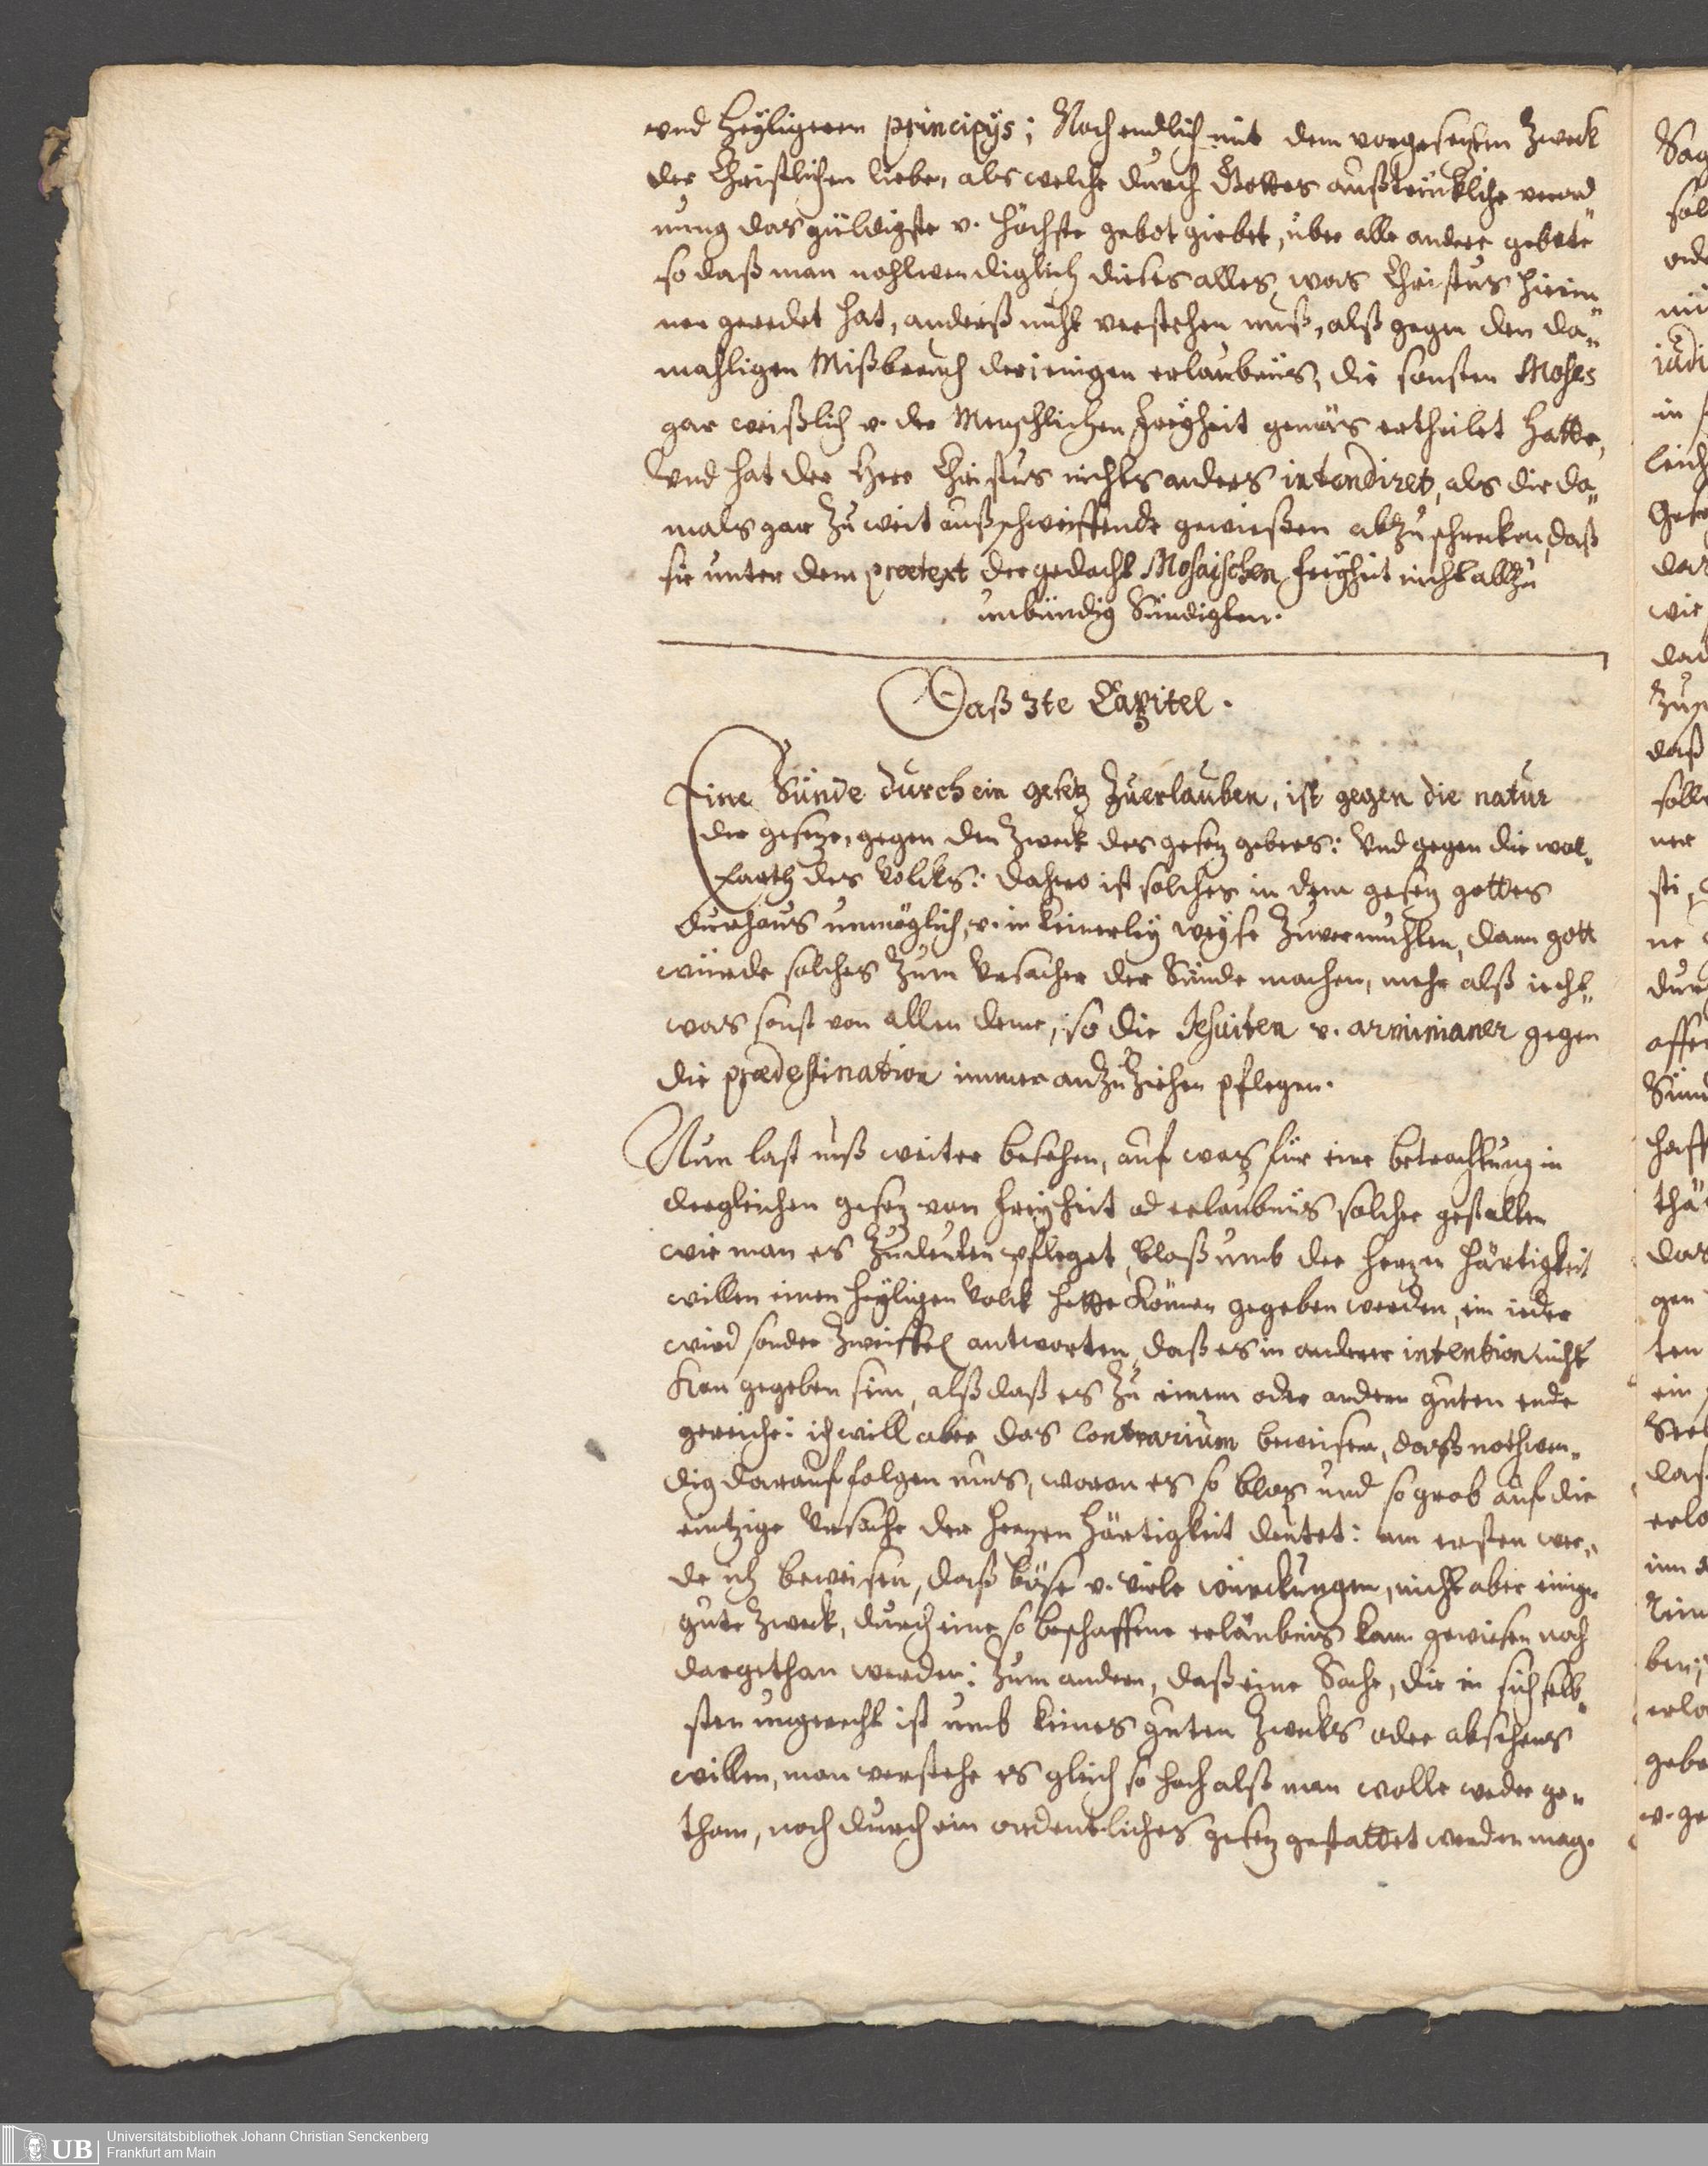 vnd heyligeren principijs; Noch endlich mit dem vorgesetzten Zweck
der Christlichen liebe, als welche durch Gottes außtrückliche verord
nung das güldigste v. höchste gebot giebet, über alle andere gebote
so daß man nohtwendiglich dieses alles, was Christus hierin„
nen geredet hat, anderß nicht verstehen muß, alß gegen den da„
mahligen Mißbrauch derienigen erlaubnüs, die sonsten Moses
gar weißlich v. der Menschlichen freyheit gemäs ertheilet hatte,
Vnd hat der Herr Christus nichts anders intendiret, als die da„
mals gar zu weit außschweiffende gewießen abzuschrecken, daß
sie unter dem prætext der gedacht Mosaischen freyheit nicht allzu
unbündig Sündigten.
Daß 3te Capitel.
Eine Sünde durch ein gesetz zuerlauben, ist gegen die natur
der gesetze, gegen den Zweck des gesetz gebers: Vnd gegen die wol„
farth des Volcks: dahero ist solches in dem gesetz gottes
durchaus unmöglich, v. in keinerley weyse zuvermuhten, dann gott
würde solches zum Vrsacher der Sünde machen, mehr alß icht„
was sonst von allen deme, so die Jesuiten v. arminianer gegen
die prædestination immer anzuziehen pflegen.
Nun last unß weiter besehen, auf was für eine betrachtung in
dergleichen gesetz von freyheit od erlaubnüs solcher gestalten
wie man es zudeuten pfleget, bloß umb der hertzen härtigkeit
willen einen heyligen Volck hette können gegeben werden, ein ieder
wird sonder Zweiffel antworten, daß es in anderer intention nicht
kan gegeben sein, alß daß es zu einem oder andern guten ende
gereiche: ich will aber das Contrarium beweisen, daß nothwen„
dig darauf folgen mus, woran es so blos und so grob auf die
eintzige Vrsache der hertzen härtigkeit deutet: am ersten wer„
de ich beweisen, daß böse v. viele würckungen, nicht aber einige
gute Zweck, durch eine so beschaffene erläubnis kan gewiesen noch
dargethan werden: zum andern, daß eine Sache, die in sich selb„
sten ungerecht ist umb keines guten Zwecks oder absehens
willen, man verstehe es gleich so hoch alß man wolle weder ge„
than, noch durch ein ordentliches gesetz gestattet werden mag.
Universitätsbibliothek Johann Christian Senckenberg
UB
Frankfurt am Main